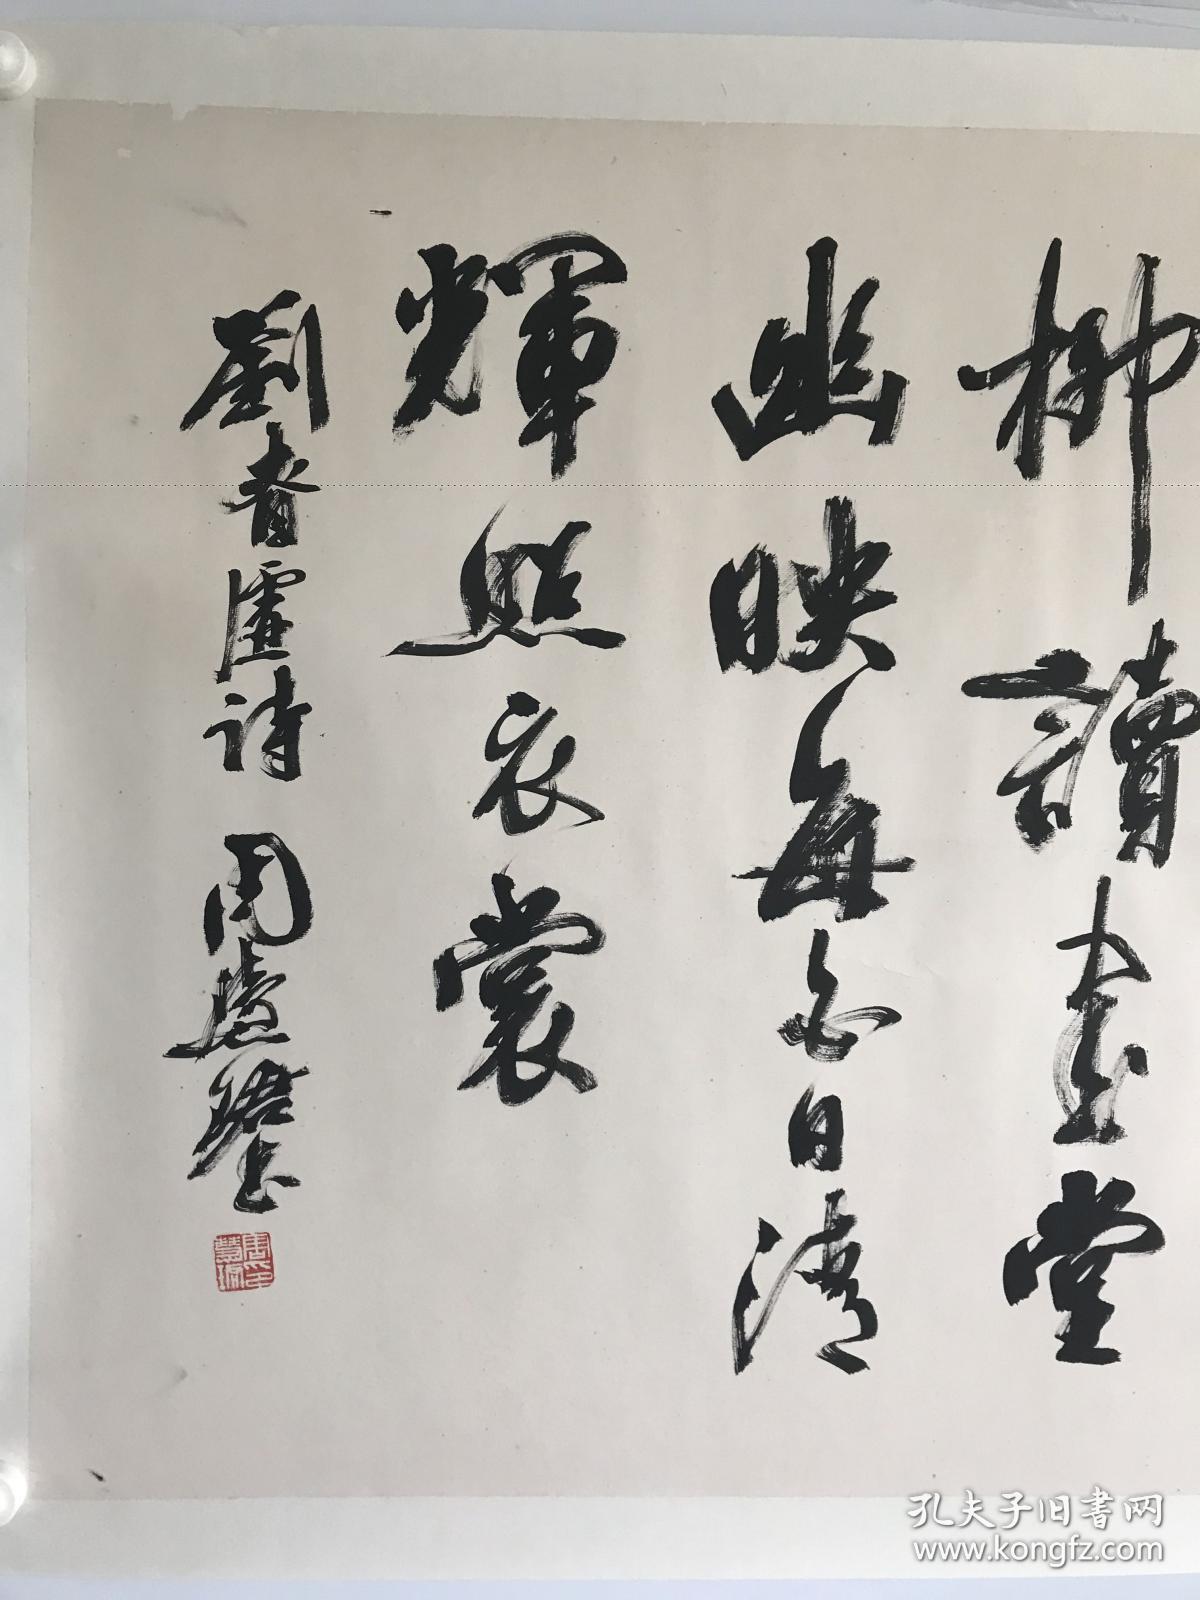 柳讀書堂
幽映每白日清
輝照衣裳
劉眘虛詩 周慧珺書
周慧珺印
孔夫子旧书网
www.kongfz.com